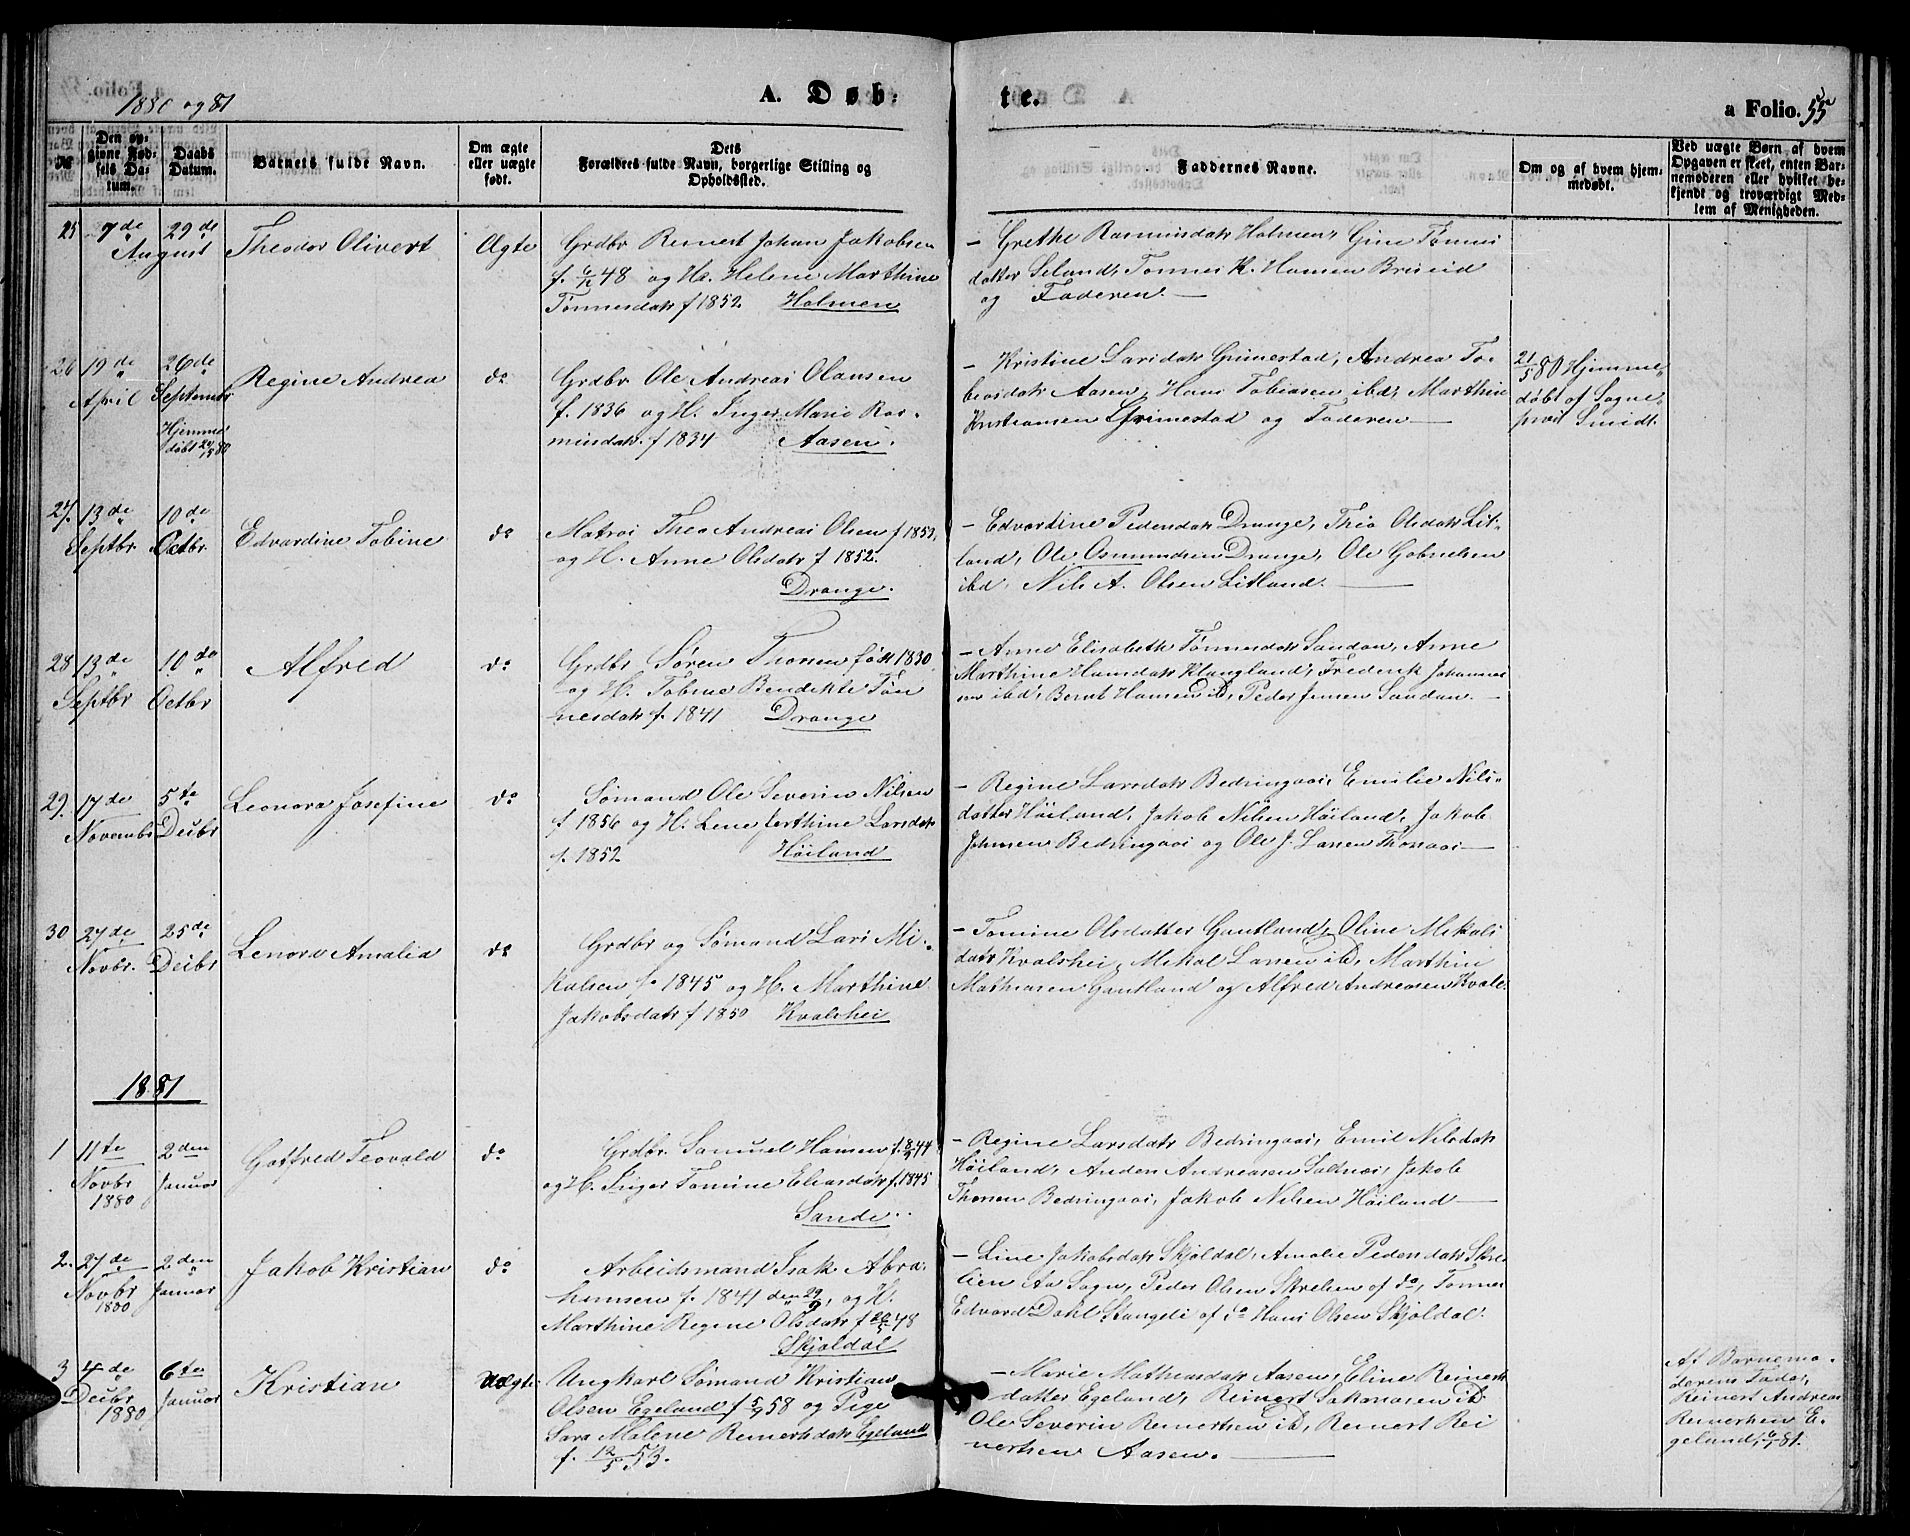 1880 og 81
A. Døb-
te.
a Folio. 55
No
Den opgivne Fødsels Datum.
Daabs Datum.
Barnets fulde Navn.
Om ægte eller uægte født.
Dets Forældres fulde Navn, borgerlige Stilling og Opholdssted.
Faddernes Navne.
Om og af hvem hjemmedøbt.
Ved uægte Børn af hvem Opgaven er skeet, enten Barnemoderen eller hvilket bekjendt og troværdigt Medlem af Menigheden.
25 7de August
29de
Theodor Olivert
Ægte
Grdbr Reinert Johan Jakobsen
f. 48 og H. Helene Marthine
Tønnesdatr f 1852. Holmen
- Grethe Rasmusdatr Holmen, Gine Tønnes
datter Seland, Tønnes K. Hansen Briseid
og Faderen.
26 19de April
26de Septembr
Hjemme
døbt 80
Regine Andrea
do
Grdbr Ole Andreas Olausen
f. 1836 og H. Inger Marie Ras-
musdatr f 1834 Aasen.
- Kristine Larsdatr Grimestad, Andrea To-
biasdatr Aasen, Hans Tobiasen ibd, Marthin
Kristiansen Grimestad og Faderen
21/5 80 Hjemme
døbt af Sogne
præst Smidt.
27. 13de Septbr
10de Octbr
Edvardine Tobine
do
Matros Theo Andreas Olsen f 1852,
og H. Anne Olsdatr f 1852.
Drange.
- Edvardine Pedersdatr Drange, Thea Olsdatr Lit-
land, Ole Osmundsen Drange, Ole Gabrielsen
ibd, Nils A. Olsen Litland.
28 13de Septbr
10de Octbr
Alfred
do
Grdbr Søren Thorsen født 1830
og H. Tobine Bendikte Tøn
nesdatr f. 1841 Drange
- Anne Elisabeth Tønnesdatr Sandan, Anne
Marthine Hansdatr Klungland, Frederik Johannes
sen ibd, Bernt Hansen ibd, Peder Jensen Sandan.
29. 17de Novembr
5te Decbr
Leonora Josefine
do
Sømand Ole Severin Nilsen
f 1856 og H. Lene Serthine Larsdatr
f. 1852 Høiland
- Regine Larsdatr Bedringaas, Emilie Nils-
datter Høiland, Jakob Nilsen Høiland, Jakob
Johnsen Bedringaas og Ole J. Larsen Thorsaas
30 27de Novbr.
25de Decbr
Lenora Amalia
do
Grdbr og Sømand Lars Mi-
kalsen f. 1845 og H. Marthine
Jakobsdatr f 1850 Kvalshei
- Tomine Olsdatter Gautland, Oline Mikals
datr Kvalshei, Mikal Larsen ibd, Marthin
Mathiasen Gautland og Alfred Andreasen Kvals
1881
1 11te Novbr 1880
2den Januar
Gotfred Teovald
do
Grdbr. Samuel Hansen f. 8/9 44
og H. Inger Tomine Eliasdatr f. 1845
Sande.
- Regine Larsdatr Bedringaas, Emil Nilsdatr
Høiland, Anders Andreasen Sadnæs, Jakob
Thorsen Bedringaas, Jakob Nilsen Høiland
2. 27de Novbr 1880
2den Januar
Jakob Kristian
do
Arbeidsmand Isak Abra
hamsen f. 1841 den 29/9, og H.
Marthine Regine Olsdatr f 48
Skjoldal
- Line Jakobsdatr Skjoldal, Amalie Pedersdatr Skre
lien Aa Sogn, Peder Olsen Skrelien af do, Tønnes
Edvard Dahl Stangeli af do Hans Olsen Skjoldal.
3 4de Decbr 1880
6te Januar
Kristian
Uægte
Ungkarl Sømand Kristian
Olsen Egeland f 5/9 58 og Pige
Sara Malene Reinertsdatr Egeland
f. 12/5 53.
- Marie Mathiasdatr Aasen, Eline Reinerts
datter Egeland, Reinert Sakariasen ibd
Ole Severin Reinertsen ibd, Reinert Rei
nertsen Aasen.
Af Barnemo-
derens Fader,
Reinert Andreas
Reinertsen E-
geland, 6/1 81.